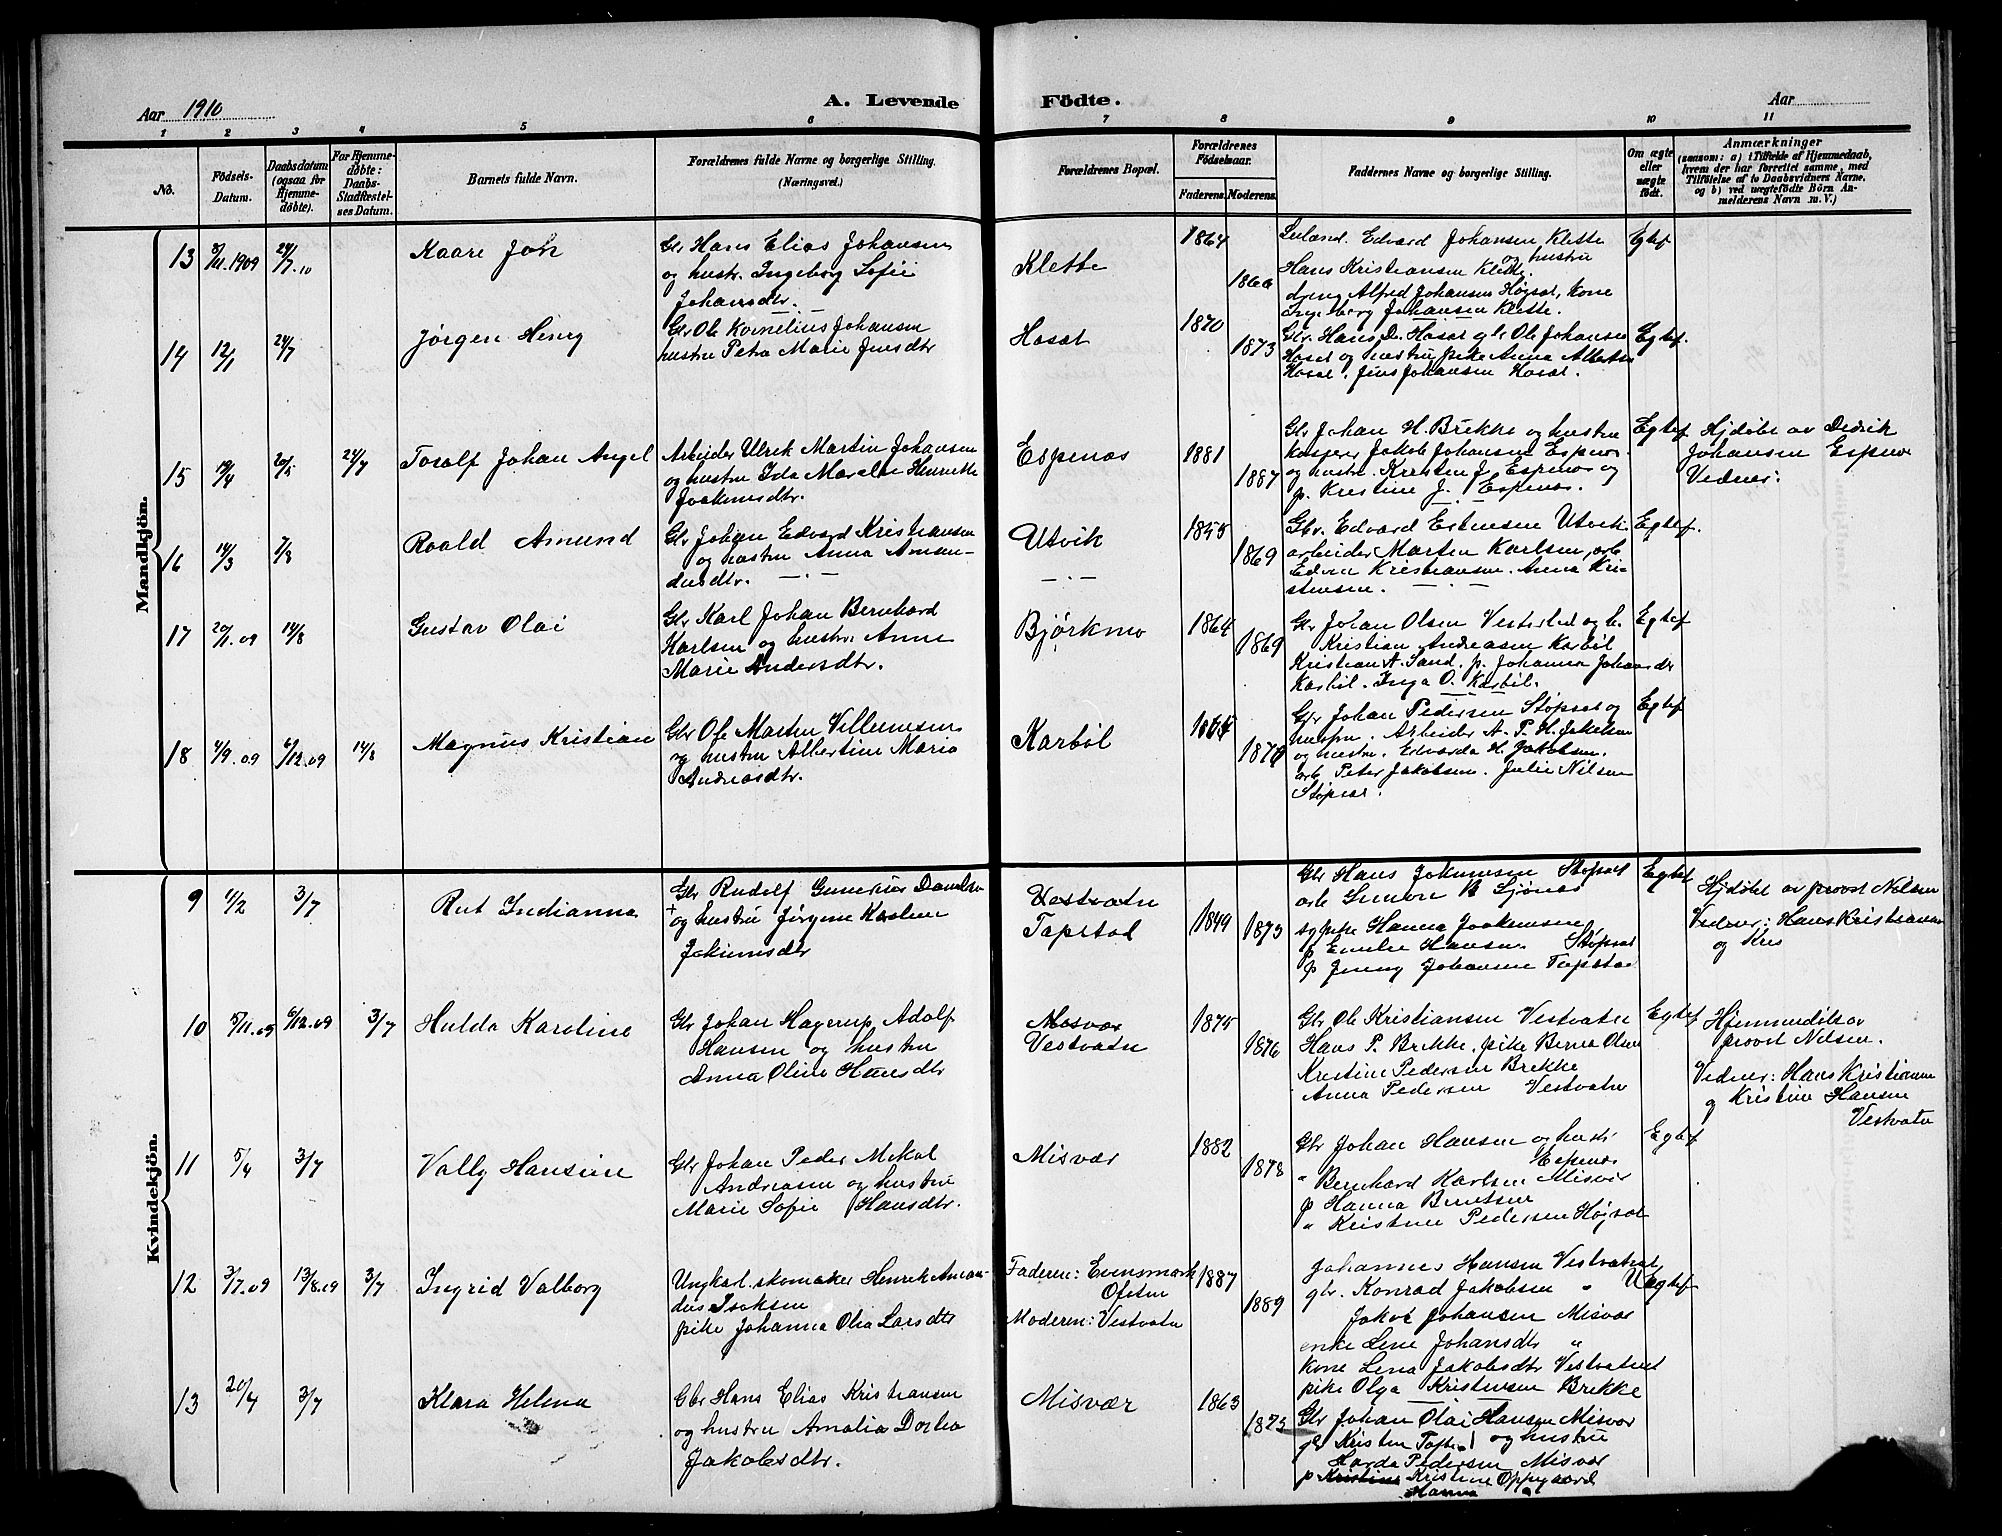 Aar 1910
A. Levende Födte.
Aar
1 2 3 4 5 6 7 8 9 10 11
No.
Födsels-Datum.
Daabsdatum (ogsaa for Hjemme-døbte).
For Hjemme-døbte: Daabs-Stadfæstel-ses Datum.
Barnets fulde Navn.
Forældrenes fulde Navne og borgerlige Stilling. (Næringsvei.)
Forældrenes Bopæl.
Forældrenes Födselsaar.
Faderens. Moderens.
Faddernes Navne og borgerlige Stilling.
Om ægte eller uægte födt.
Anmærkninger
(saasom: a) i Tilfælde af Hjemmedaab, hvem der har forrettet samme, med Tilföielse af to Daabsvidners Navne, og b) ved uægtefödte Börn An-melderens Navn m.V.)
Mandkjön.
13 8/11.1909 24/7.10
Kaare Joh
Gbr Hans Elias Johansen
og hustr. Ingeborg Sofie
Johansdtr.
Klette
1864
1866
Edvard Johansen Klette
og hustru
Hans Kristiansen Klette.
dreng Alfred Johansen Høgset, kone
Ingeborg Johansen Klette.
Egtef
14 12/1 24/7
Jørgen Henry
Gbr Ole Kornelius Johansen
hustru Petra Marie Jensdtr
Hoset
1870
1873
Gbr. Hans D. Hoset gbr Ole Johansen
Hoset og hustru pike Anna Alberts
Hoset. Jens Johansen Hoset.
Egtef.
15 19/4 20/5 24/7
Toralf Johan Angel
Arbeider Ulrik Martin Johansen
og hustru Ida Maralde Henrikke
Joakimsdtr.
Espenes
1881
1887
Gbr Johan H. Brekke og hustru
Kasper Jakob Johansen Espenes.
og hustr. Kristen J. Espenes og
p. Kristine J. Espenes.
Egtef
Hjdøbt av Didrik
Johansen Espenes
Vidner:
16 14/3 7/8
Roald Amund
Gbr Johan Edvard Kristiansen
og hustru Anna Aman-
dusdtr.
Utvik
1855
1869
Gbr. Edvard Estensen Utvik
arbeider Marten Karlsen, arb
Edvin Kristiansen. Anna Kri-
stensen.
Egtef.
17 20/1.09 14/8
Gustav Olai
Gbr Karl Johan Bernhard
Karlsen og hustr. Anne
Marie Andersdtr.
Bjørkmo
1864
1869
Gbr Johan Olsen Vesterli og h.
Kristian Andreasen Karbøl
Kristian A. Sand. p. Johanna Johansdr
Karbøl. Inga O. Karbøl.
Egtef
18 4/9.09 6/12.09 14/8
Magnus Kristian
Gbr Ole Marten Villumsen
og hustru Albertine Maria
Andreasdtr.
Karbøl
1870
Gbr Johan Pedersen Støpset og
hustru. Arbeider A. P. H. Jakobsen
og hustru. Edvarda H. Jakobsen.
arb Peter Jakobsen. Julie Nilsen
Støpset.
Egtef
Kvindekjön.
9 1/2 3/7
Rut Indianna
Gbr Rudolf Gunerius Danielsen
+ og hustru Jørgine Karoline
Jakimsdtr
Vestvatn
Tapstad
1849
1873
Gbr Hans Jokumsen Støpset
arb Simon B Sjønes
sypike Hanna Joakimsen
p Emelie Hansen Støpset
p Jenny Johansen Tapstad
Egtef
Hjdøbt av provst Nilsen
Vidner: Hans Kristiansen
og Kris
10 5/11.09 6/12.09 3/7
Hulda Karoline
Gbr Johan Hagerup Adolf
Hansen og hustru
Anna Oline Hansdtr
Misvær
Vestvatn
1875
1876
Gbr Ole Kristiansen Vestvatn
Hans P. Brekke. pike Berna Olsen
Kristine Pedersen Brekke
Anna Pedersen Vestvatn
Egtef
Hjemmedøbt av
provst Nilsen.
Vidner: Hans Kristiansen
og Kristine Hansen
Vestvatn
11 5/4 3/7
Vally Hansine
Gbr Johan Peder Mikal
Andreasen og hustru
Marie Sofie Hansdtr.
Misvær
1882
1878
Gbr Johan Hansen og hustr
Espenes
" Bernhard Karlsen Misvær
p Hanna Berntsen
" Kristine Pedersen Høgset
Egtef
12 3/7.09 13/8.09 3/7
Ingrid Valborg
Ungkarl. skomaker Henrik Aman-
dus Isaksen
pike Johanna Olea Larsdtr
Faderen: Evensmark
Ofoten
Moderen: Vestvatn
1887
1889
Johannes Hansen Vestvatnet
gbr. Konrad Jakobsen "
Jakob Johansen Misvær
enke Lene Johansdtr "
Kone Lena Jakobsdtr Vestvatnet
pike Olga Kristensen Brekke
Uegtef
13 20/4 3/7
Klara Helena
Gbr Hans Elias Kristiansen
og hustru Amalia Dorthea
Jakobsdtr.
Misvær
1863
1873
Gbr Johan Olai Hansen Misvær
gbr Kristen Tofte og hustru
Harda Pedersen Misvær
p Kristine Kristine Oppegaard
Hanna